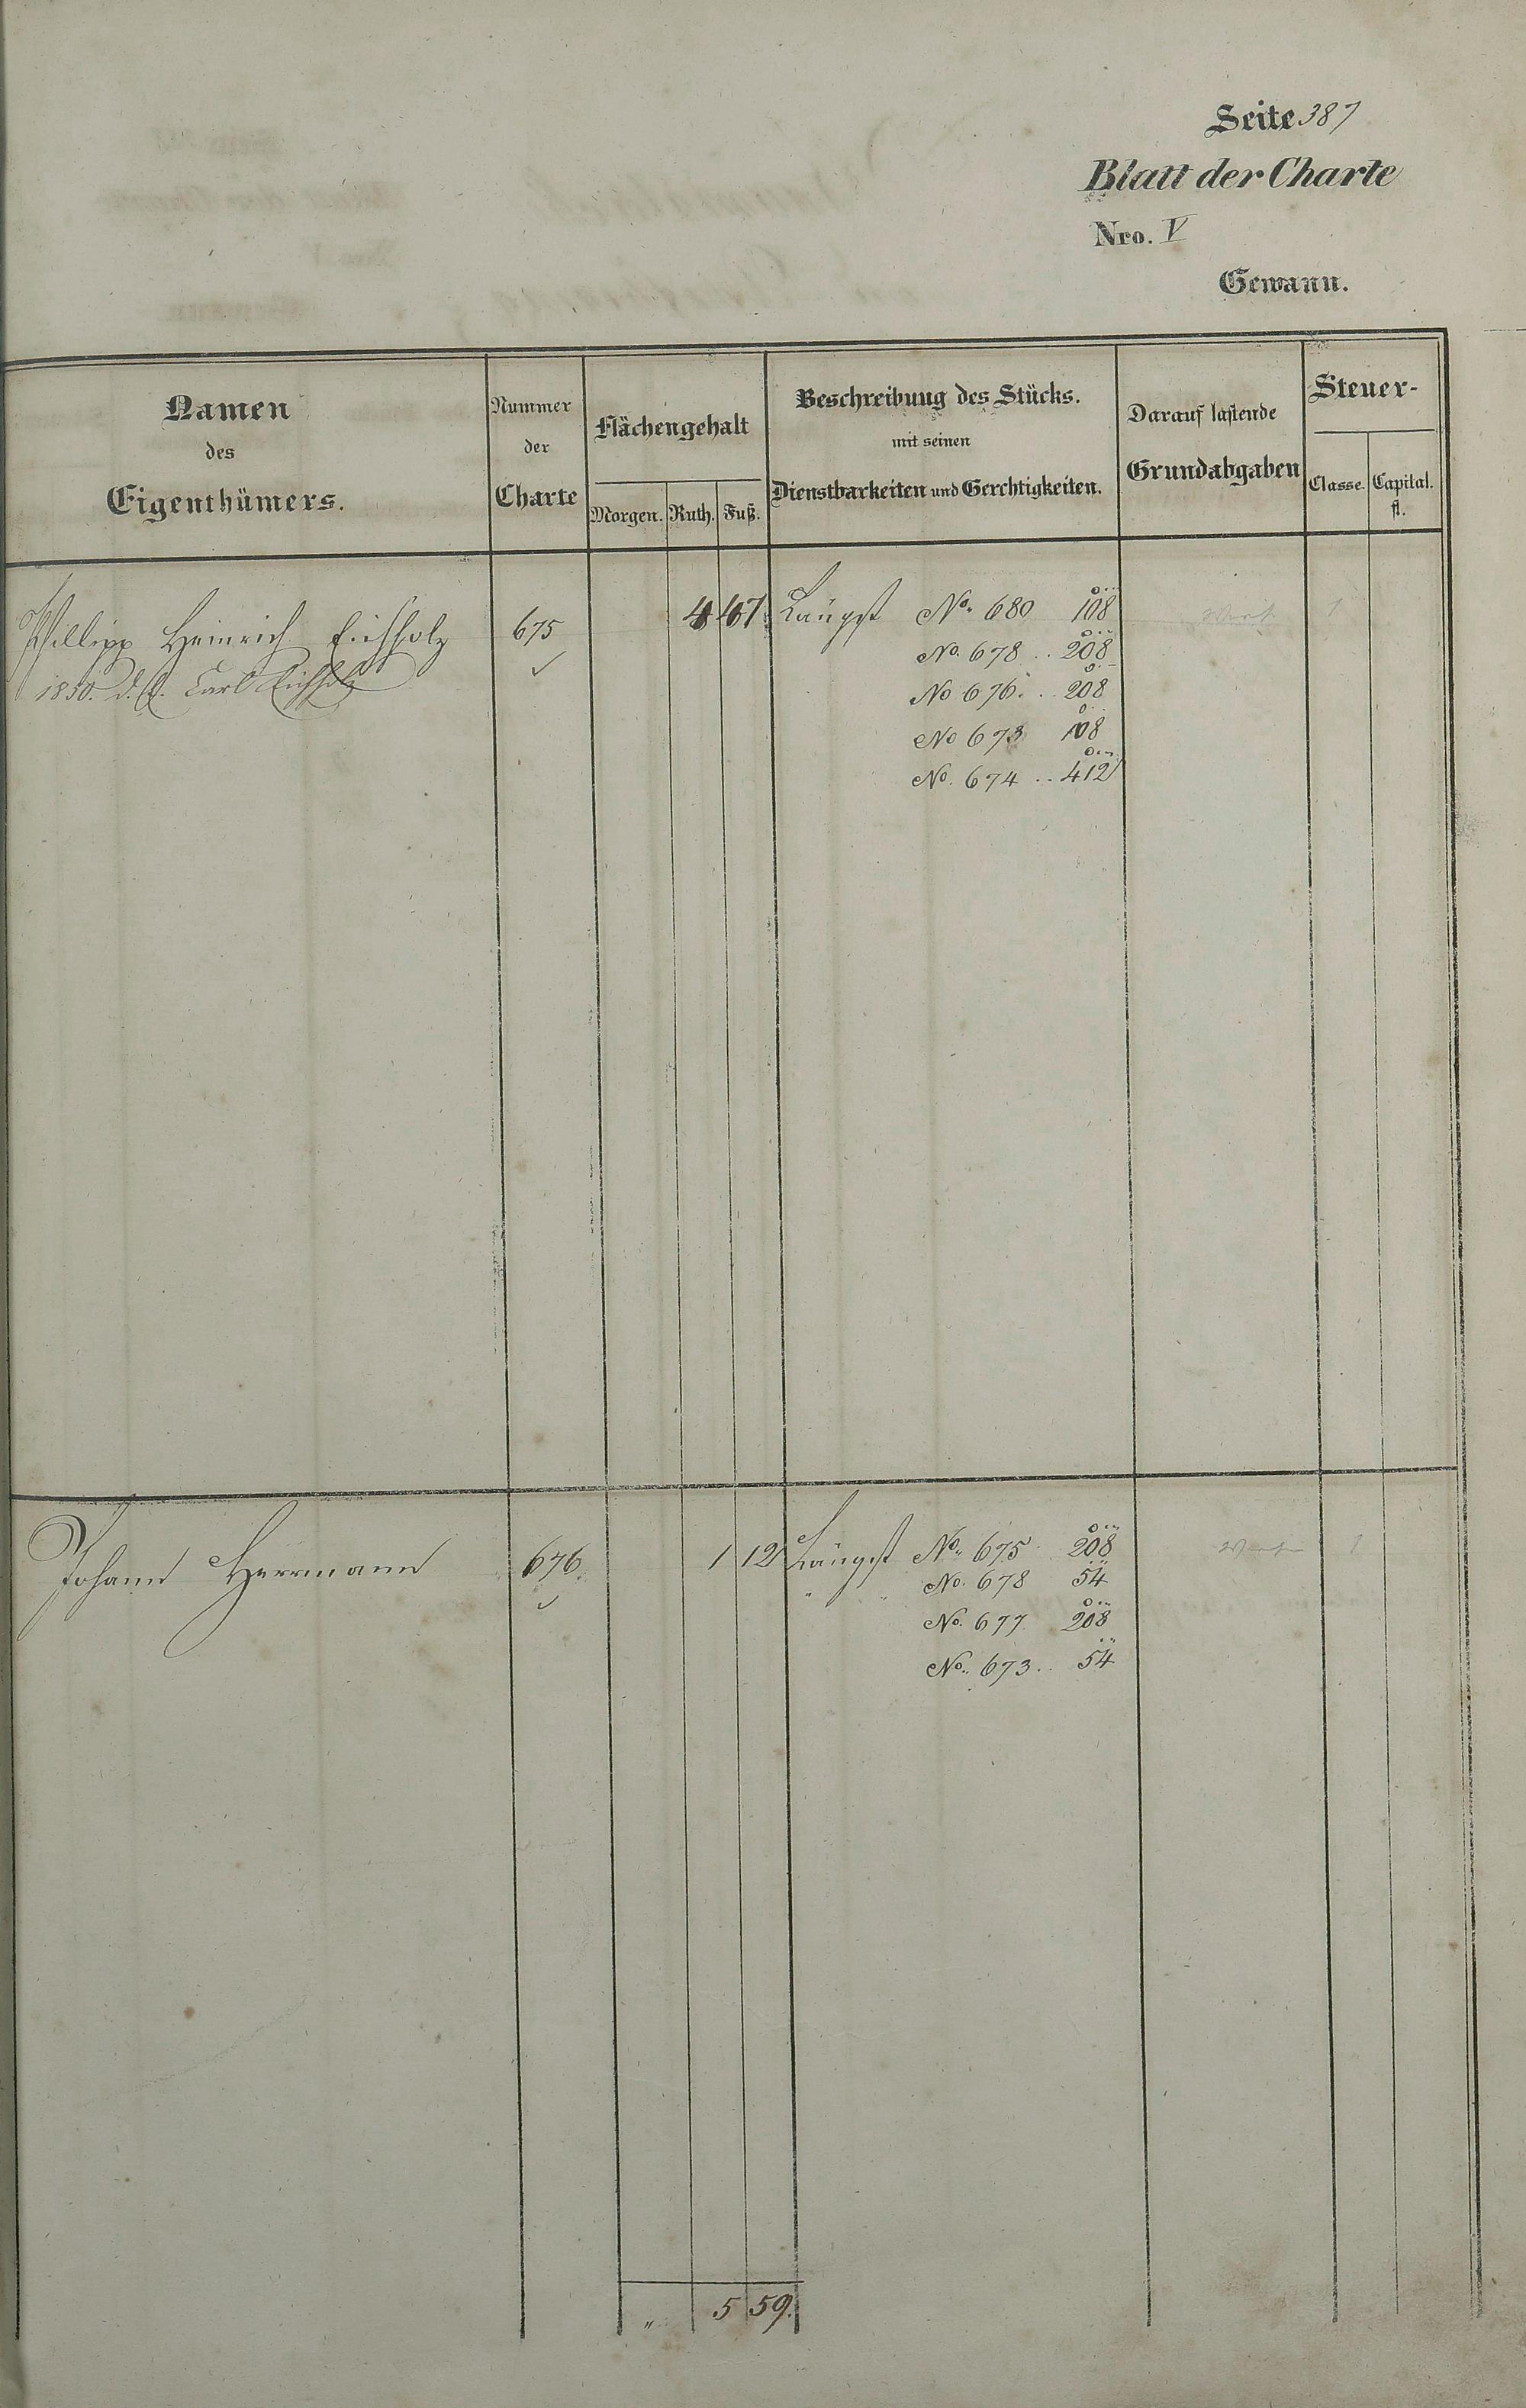 Seite 387
Blatt der Charte
Nro. V
Gewann.
Namen
des
Eigenthümers.
Nummer
der
Charte
Flächengehalt
Morgen. Ruth. Fuß.
Beschreibung des Stücks.
mit seinen
Dienstbarkeiten und Gerchtigkeiten.
Darauf lastende
Grundabgaben
Steuer-
Classe. Capital.
fl.
Phillipp Heinrich Eichholz 675 4 47 Längst No. 680 108
1850. d. C. Carl Eichholz No. 678 .. 208
No 676. .. 208
No 673 108
No. 674 .. 412
Johann Herrmann 676. 1 12 Längst No. 675 208 1
" " No. 678 54
No. 677 208
No. 673 .. 54
" 5 59.